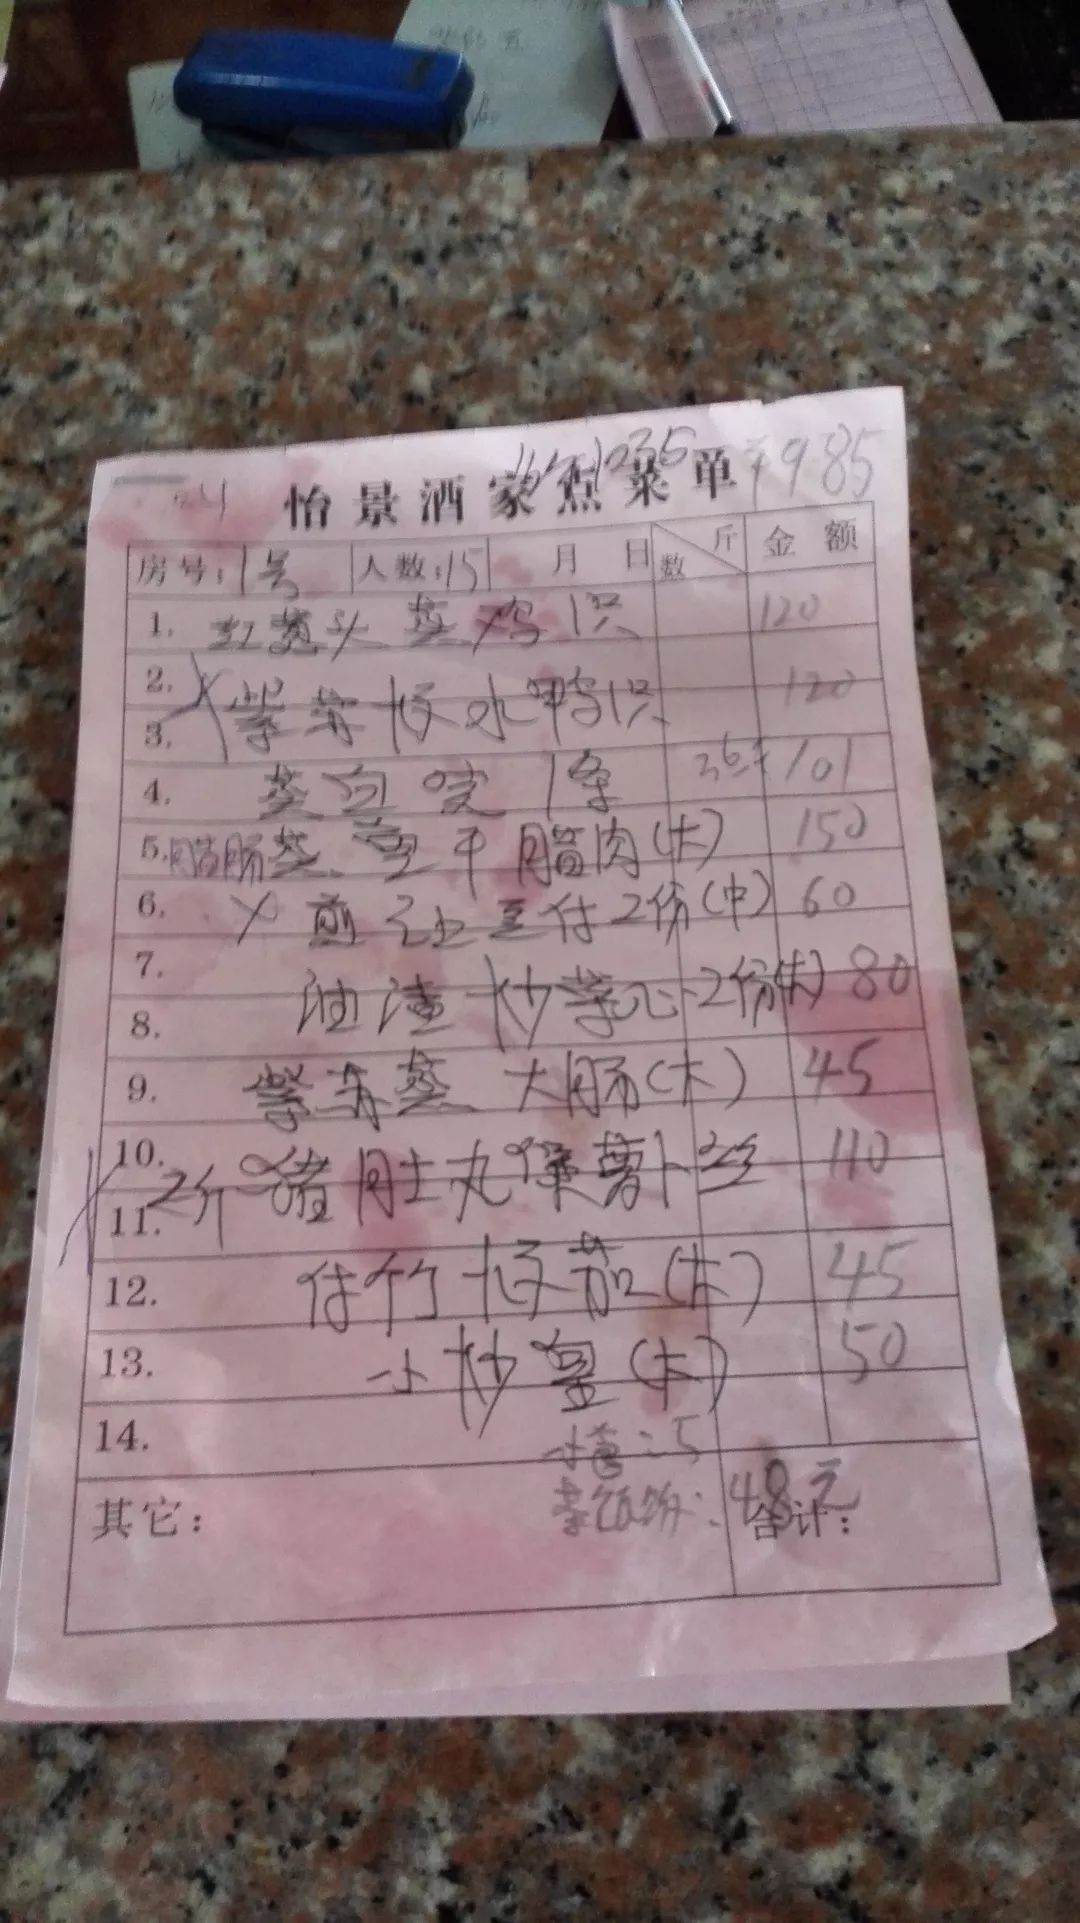 怡景酒家点菜单 985
房号：1号 人数：15 月 日 斤 数 金额
1. 红葱头蒸鸡1只 120
2.
3. 紫苏 水鸭1只 120
4. 蒸 1条 101
5. 腊肠蒸 干腊肉(大) 150
6. 煎 豆付2份(中) 60
7.
8. 油渣炒菜心2份(大) 80
9. 紫苏蒸大肠(大) 45
10.
11. 2斤 猪肚丸煲萝卜丝 110
12. 付竹 茄(大) 45
13. 小炒 (大) 50
14.
5
其它： 48元
合计：